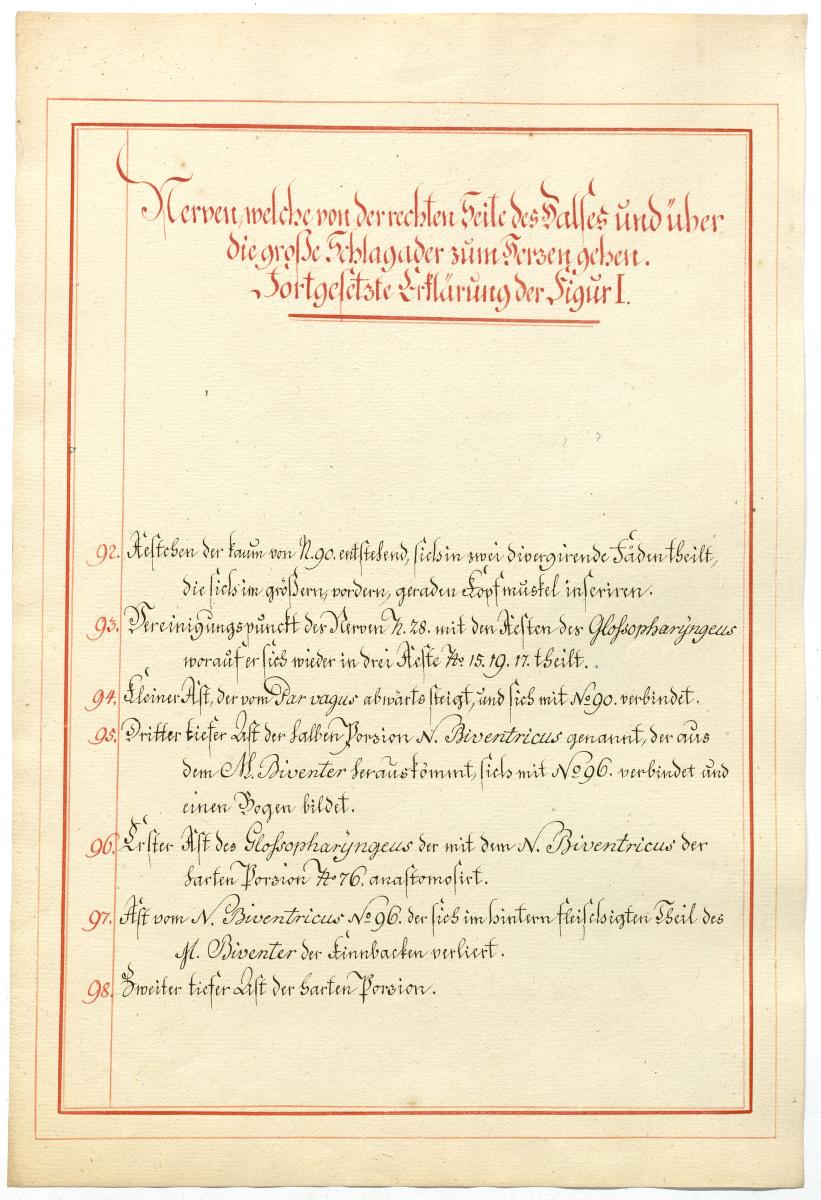 Nerven, welche von der rechten Seite des Halses und über
die große Schlagader zum Herzen gehen.
Fortgesetzte Erklärung der Figur I.
92. Aestchen der kaum von N. 90. entstehend, sich in zwei divergirende Fäden theilt,
die sich im größern, vordern, geraden Kopfmuskel inseriren.
93. Vereinigungspunckt des Nerven N. 28. mit den Aesten des Glossopharÿngeus
worauf er sich wieder in drei Aeste No 15. 19. 17. theilt.
94. Kleiner Ast, der vom Par vagus abwärts steigt, und sich mit No 90. verbindet.
95. Dritter tiefer Ast der halben Porzion N. Biventricus genannt, der aus
dem M. Biventer herauskömmt, sich mit No 96. verbindet und
einen Bogen bildet.
96. Erster Ast des Glossopharÿngeus der mit dem N. Biventricus der
harten Porzion No 76. anastomosirt.
97. Ast vom N. Biventricus No 96. der sich im hintern fleischigten Theil des
M. Biventer der Kinnbacken verliert.
98. Zweiter tiefer Ast der harten Porzion.